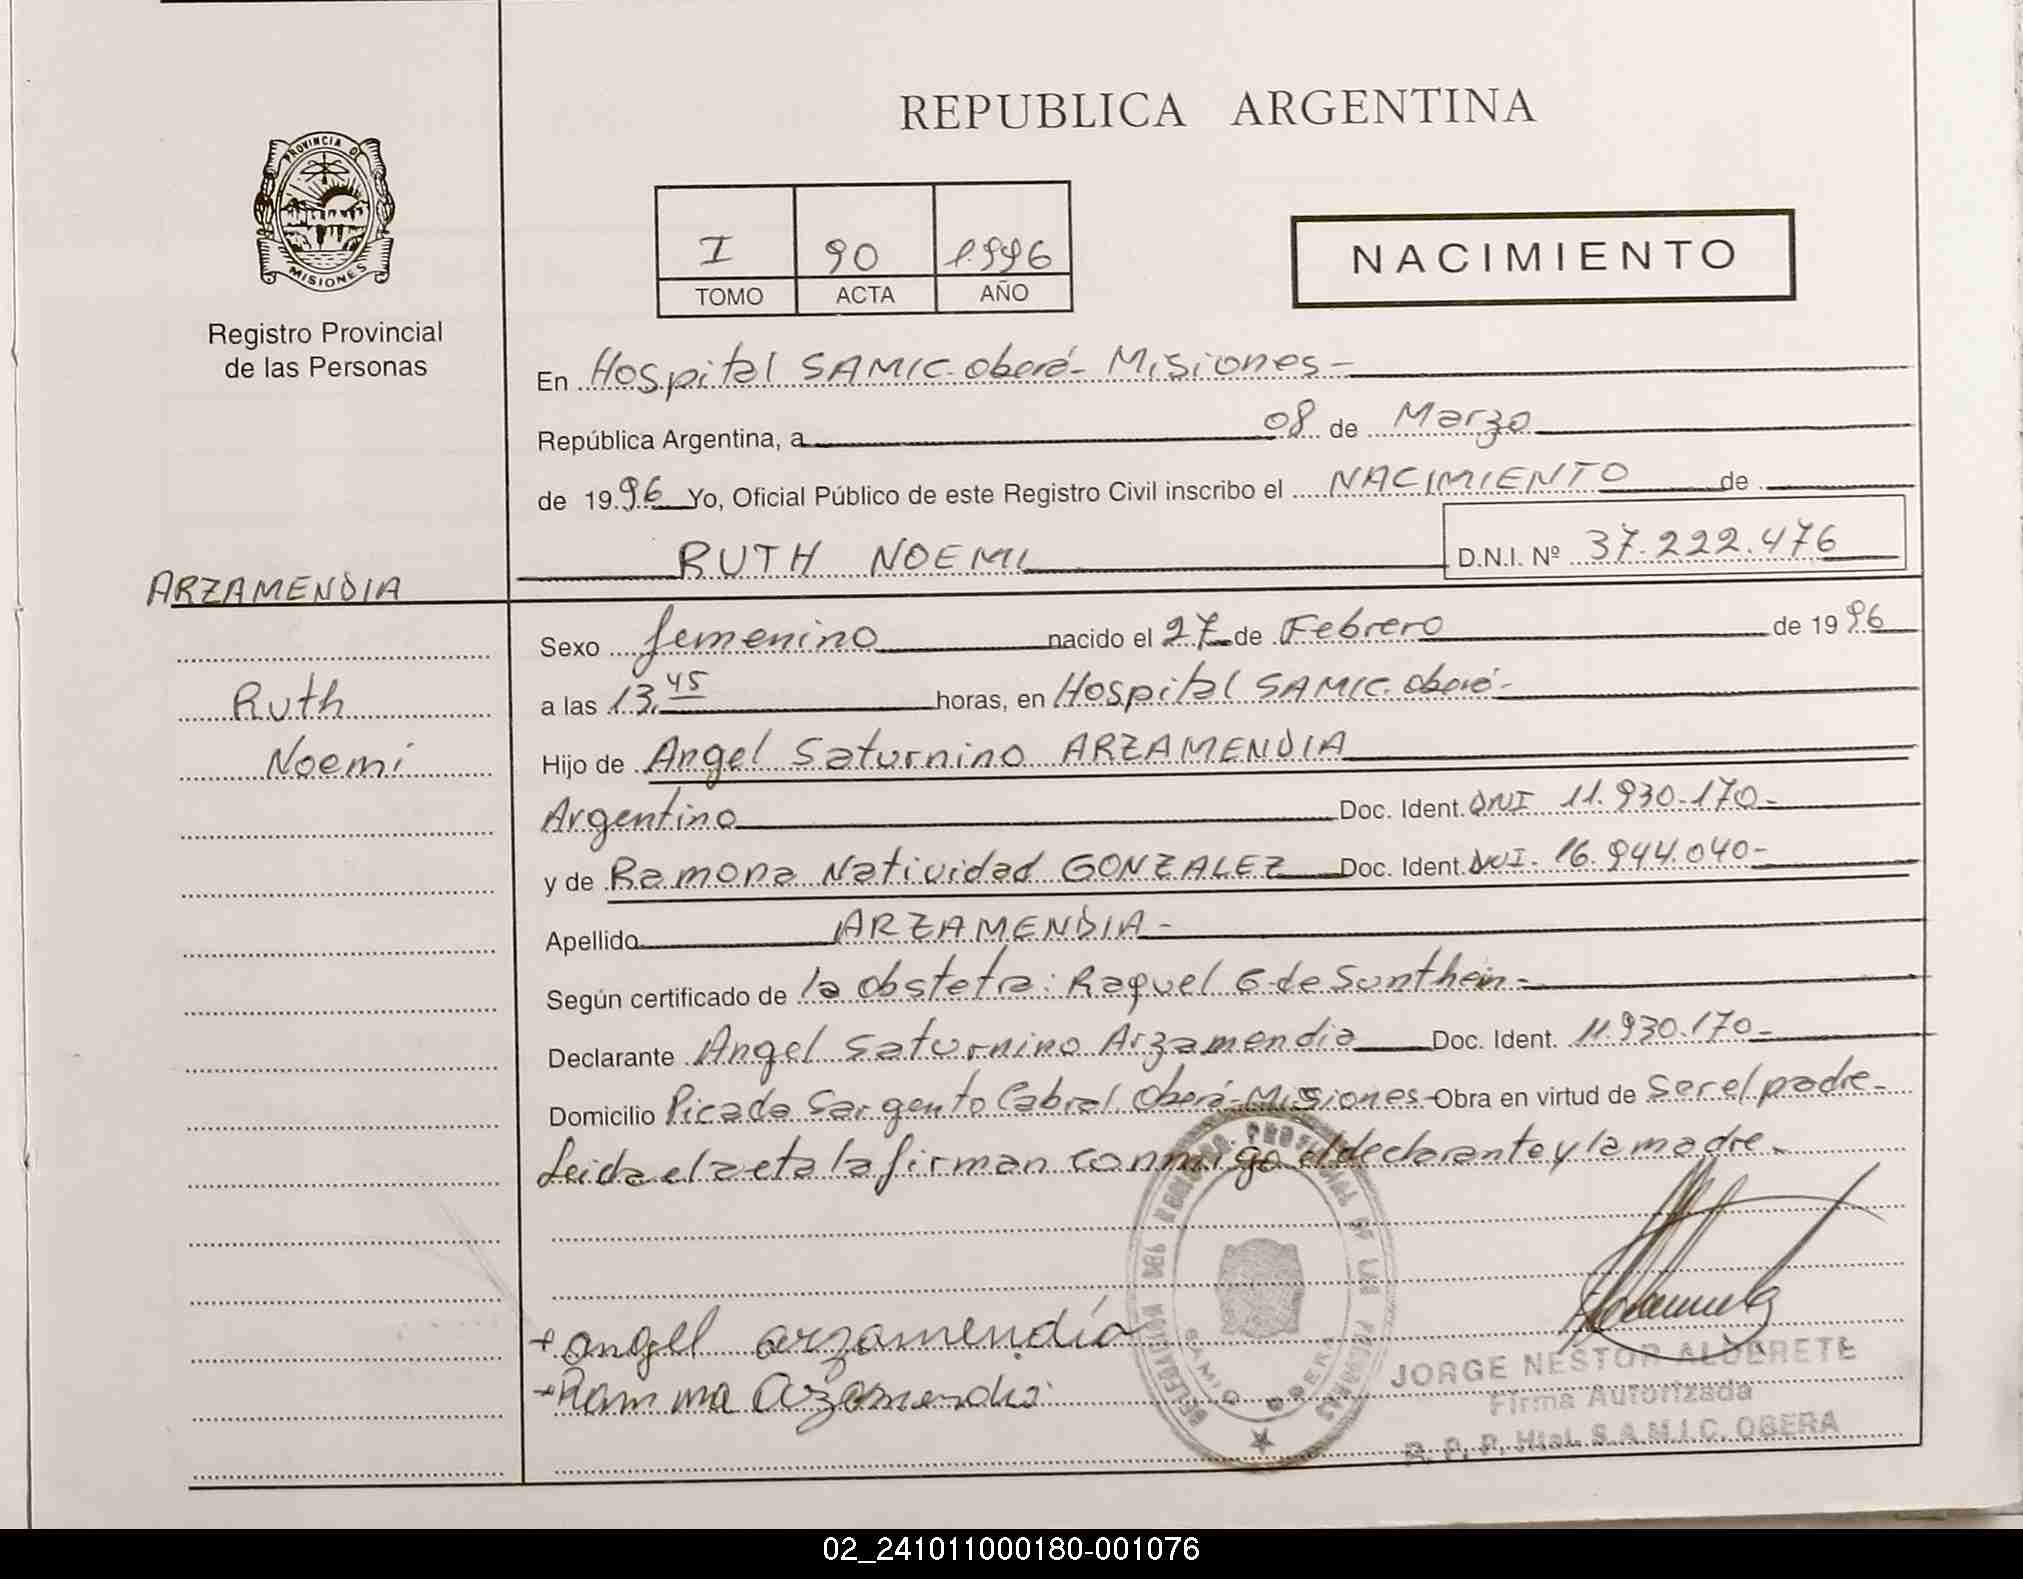 REPUBLICA ARGENTINA
PROVINCIA DE
MISIONES
Registro Provincial
de las Personas
I 90 1.996
TOMO ACTA AÑO
NACIMIENTO
En Hospital SAMIC. oberá - Misiones -
República Argentina, a 08 de Marzo
de 1996 Yo, Oficial Público de este Registro Civil inscribo el NACIMIENTO de
RUTH NOEMI D.N.I. Nº 37.222.476
ARZAMENDIA
Ruth
Noemi
Sexo femenino nacido el 27 de Febrero de 1996
a las 13,45 horas, en Hospital SAMIC. oberá -
Hijo de Angel Saturnino ARZAMENDIA
Argentino Doc. Ident. DNI 11.930.170 -
y de Ramona Natividad GONZALEZ Doc. Ident. DNI. 16.944.040 -
Apellido ARZAMENDIA -
Según certificado de la obstetra: Raquel G de Sonthein -
Declarante Angel Saturnino Arzamendia Doc. Ident. 11.930.170 -
Domicilio Picada Sargento Cabral. Oberá - Misiones - Obra en virtud de Ser el padre -
Leida el acta la firman conmigo el declarante y la madre -
DELEGACION DEL REGISTRO PROVINCIAL DE LAS PERSONAS
SAMIC OBERA
+ angel arzamendía
+ Ramona Arzamendia
JORGE NESTOR ALDERETE
Firma Autorizada
R. P. P. Htal. S.A.M.I.C. OBERA
02_241011000180-001076